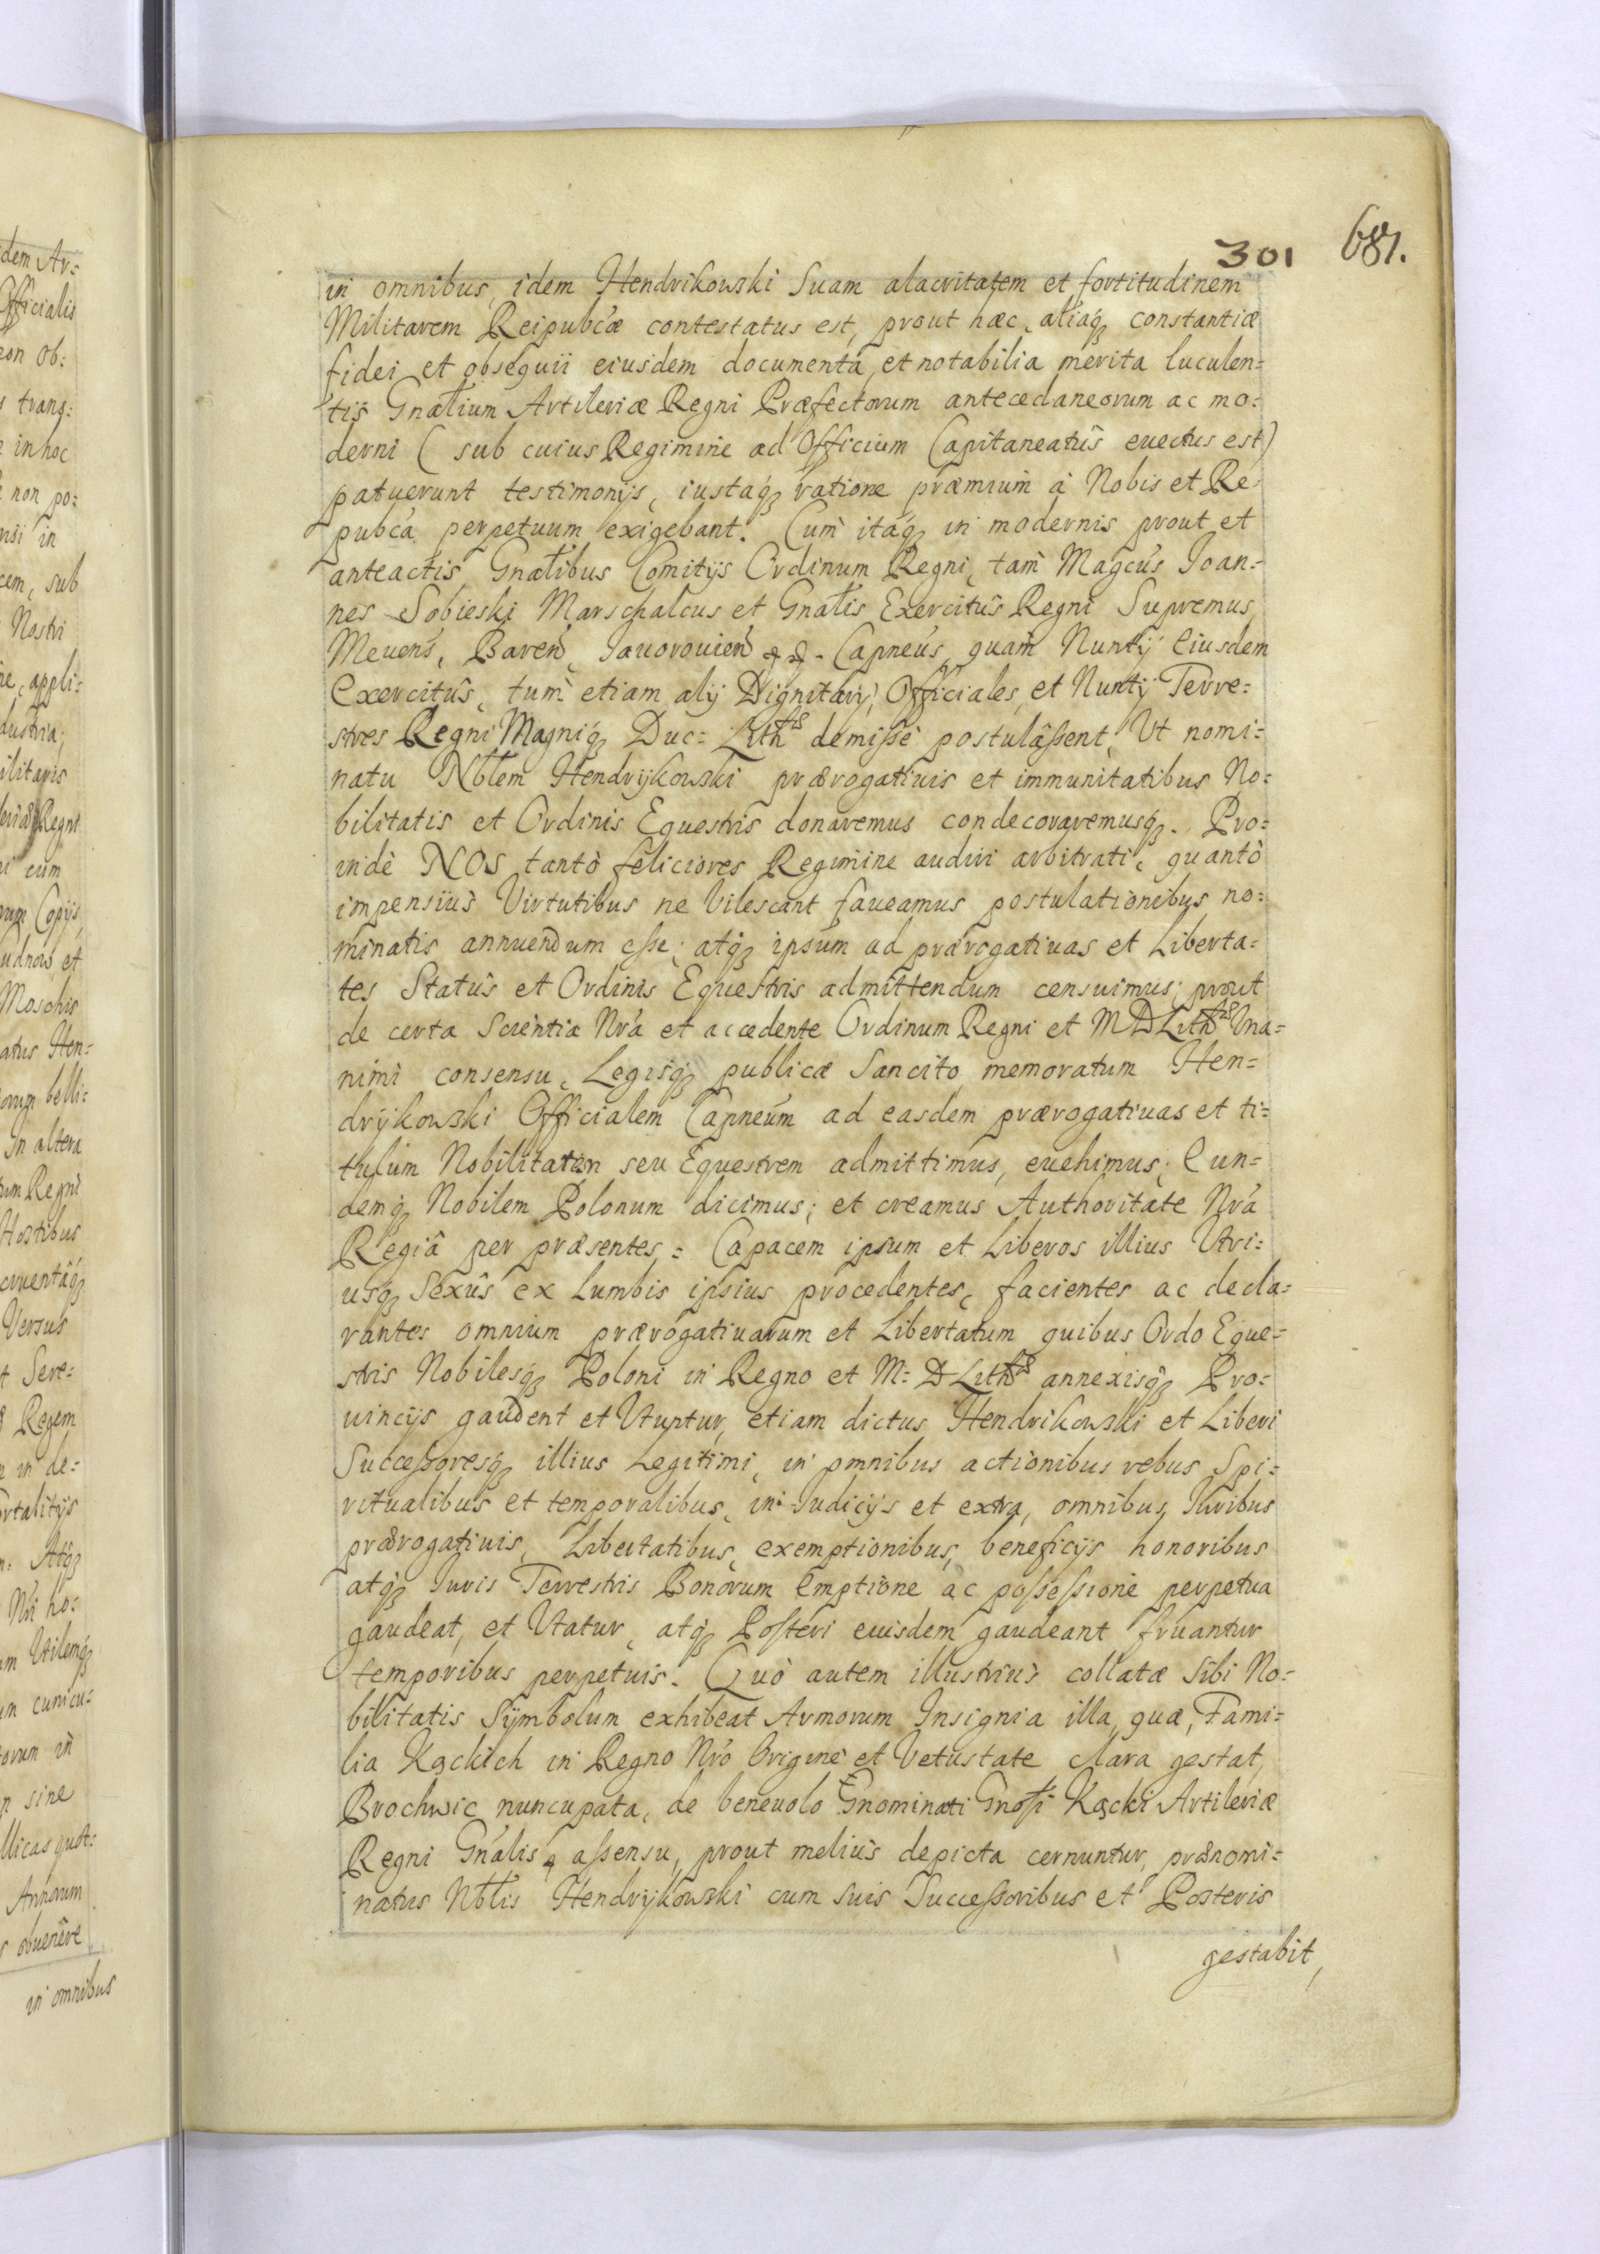 301 681.
in omnibus, idem Hendrikowski Suam alacritatem et fortitudinem
Militarem Reipubcæ contestatus est, prout hæc, aliaq; constantiæ
fidei et obsequii eiusdem documenta, et notabilia merita luculen-
tis Gnalium Artileriæ Regni Præfectorum antecedaneorum ac mo:
derni (sub cuius Regimine ad Officium Capitaneatûs evectus est)
patuerunt testimonijs, iustaq; ratione præmium à Nobis et Re
pubca perpetuum exigebant. Cum itaq; in modernis prout et
anteactis Gnalibus Comitijs Ordinum Regni, tam Magcus Ioan-
nes Sobieski Marschalcus et Gnalis Exercitûs Regni Supremus
Mevens, Baren, Iavorovien Capneus, quam Nuntij Eiusdem
Exercitûs, tum etiam alij Dignitarij, Officiales, et Nuntij Terre:
stres Regni Magniq; Duc: Lith demisse postulâssent, Ut nomi:
natu Nblem Hendrijkowski prærogativis et immunitatibus No:
bilitatis et Ordinis Equestris donaremus condecoraremusq;. Pro:
indè NOS tantò feliciores Regimine audiri arbitrati, quantò
impensiùs Virtutibus ne vilescant faveamus postulationibus no:
minatis annuendum esse; atq; ipsum ad prærogativas et Liberta-
tes Statûs et Ordinis Equestris admittendum censuimus; prout
de certa Scientia Nra et accedente Ordinum Regni et M D Lith Una=
nimi consensu, Legisq; publicæ Sancito memoratum Hen-
drijkowski Officialem Capneum ad easdem prærogativas et ti=
tulum Nobilitatem seu Equestrem admittimus, evehimus; Eun-
demq; Nobilem Polonum dicimus; et creamus Authoritate Nra
Regiâ per præsentes = Capacem ipsum et Liberos illius Utri=
usq; Sexûs ex Lumbis ipsius procedentes, facientes ac decla=
rantes omnium prærogativarum et Libertatum quibus Ordo Eque-
stris Nobilesq; Poloni in Regno et M: D Lith annexisq; Pro:
vincijs gaudent et Utuntur, etiam dictus Hendrikowski et Liberi
Successoresq; illius Legitimi, in omnibus actionibus rebus Spi:
ritualibus et temporalibus, in Iudicijs et extra, omnibus Iuribus
prærogativis, Libertatibus, exemptionibus, beneficijs honoribus
atq; Iuris Terrestris Bonorum Emptione ac possessione perpetua
gaudeat, et Utatur, atq; Posteri eiusdem gaudeant fruantur
temporibus perpetuis. Quò autem illustriùs collatæ Sibi No-
bilitatis Symbolum exhibeat Armorum Insignia illa, quæ, Fami-
lia Kąckich in Regno Nro Origine et Vetustate clara gestat,
Brochwic nuncupata, de benevolo Gnominati Gnosi Kącki Artileriæ
Regni Gnalis assensu, prout meliùs depicta cernuntur, prænomi-
natus Nblis Hendrijkowski cum suis Successoribus et Posteris
gestabit,
dem Ar=
Officialis
on Ob:
trans:
in hoc
non po:
nsi in
cem, sub
Nostri
ne, appli:
dustria,
ilitaris
Regni
cum
Copijs,
udnow et
Moschis
atus Hen:
orum belli:
in altera
um Regni
Hostibus
cruentaq;
Versus
Sere=
Regem
in de:
rtalitijs
Atq;
Nri ho:
m Utilemq;
cunicu:
orum in
sine
llicas quot:
Annorum
obvenêre
in omnibus